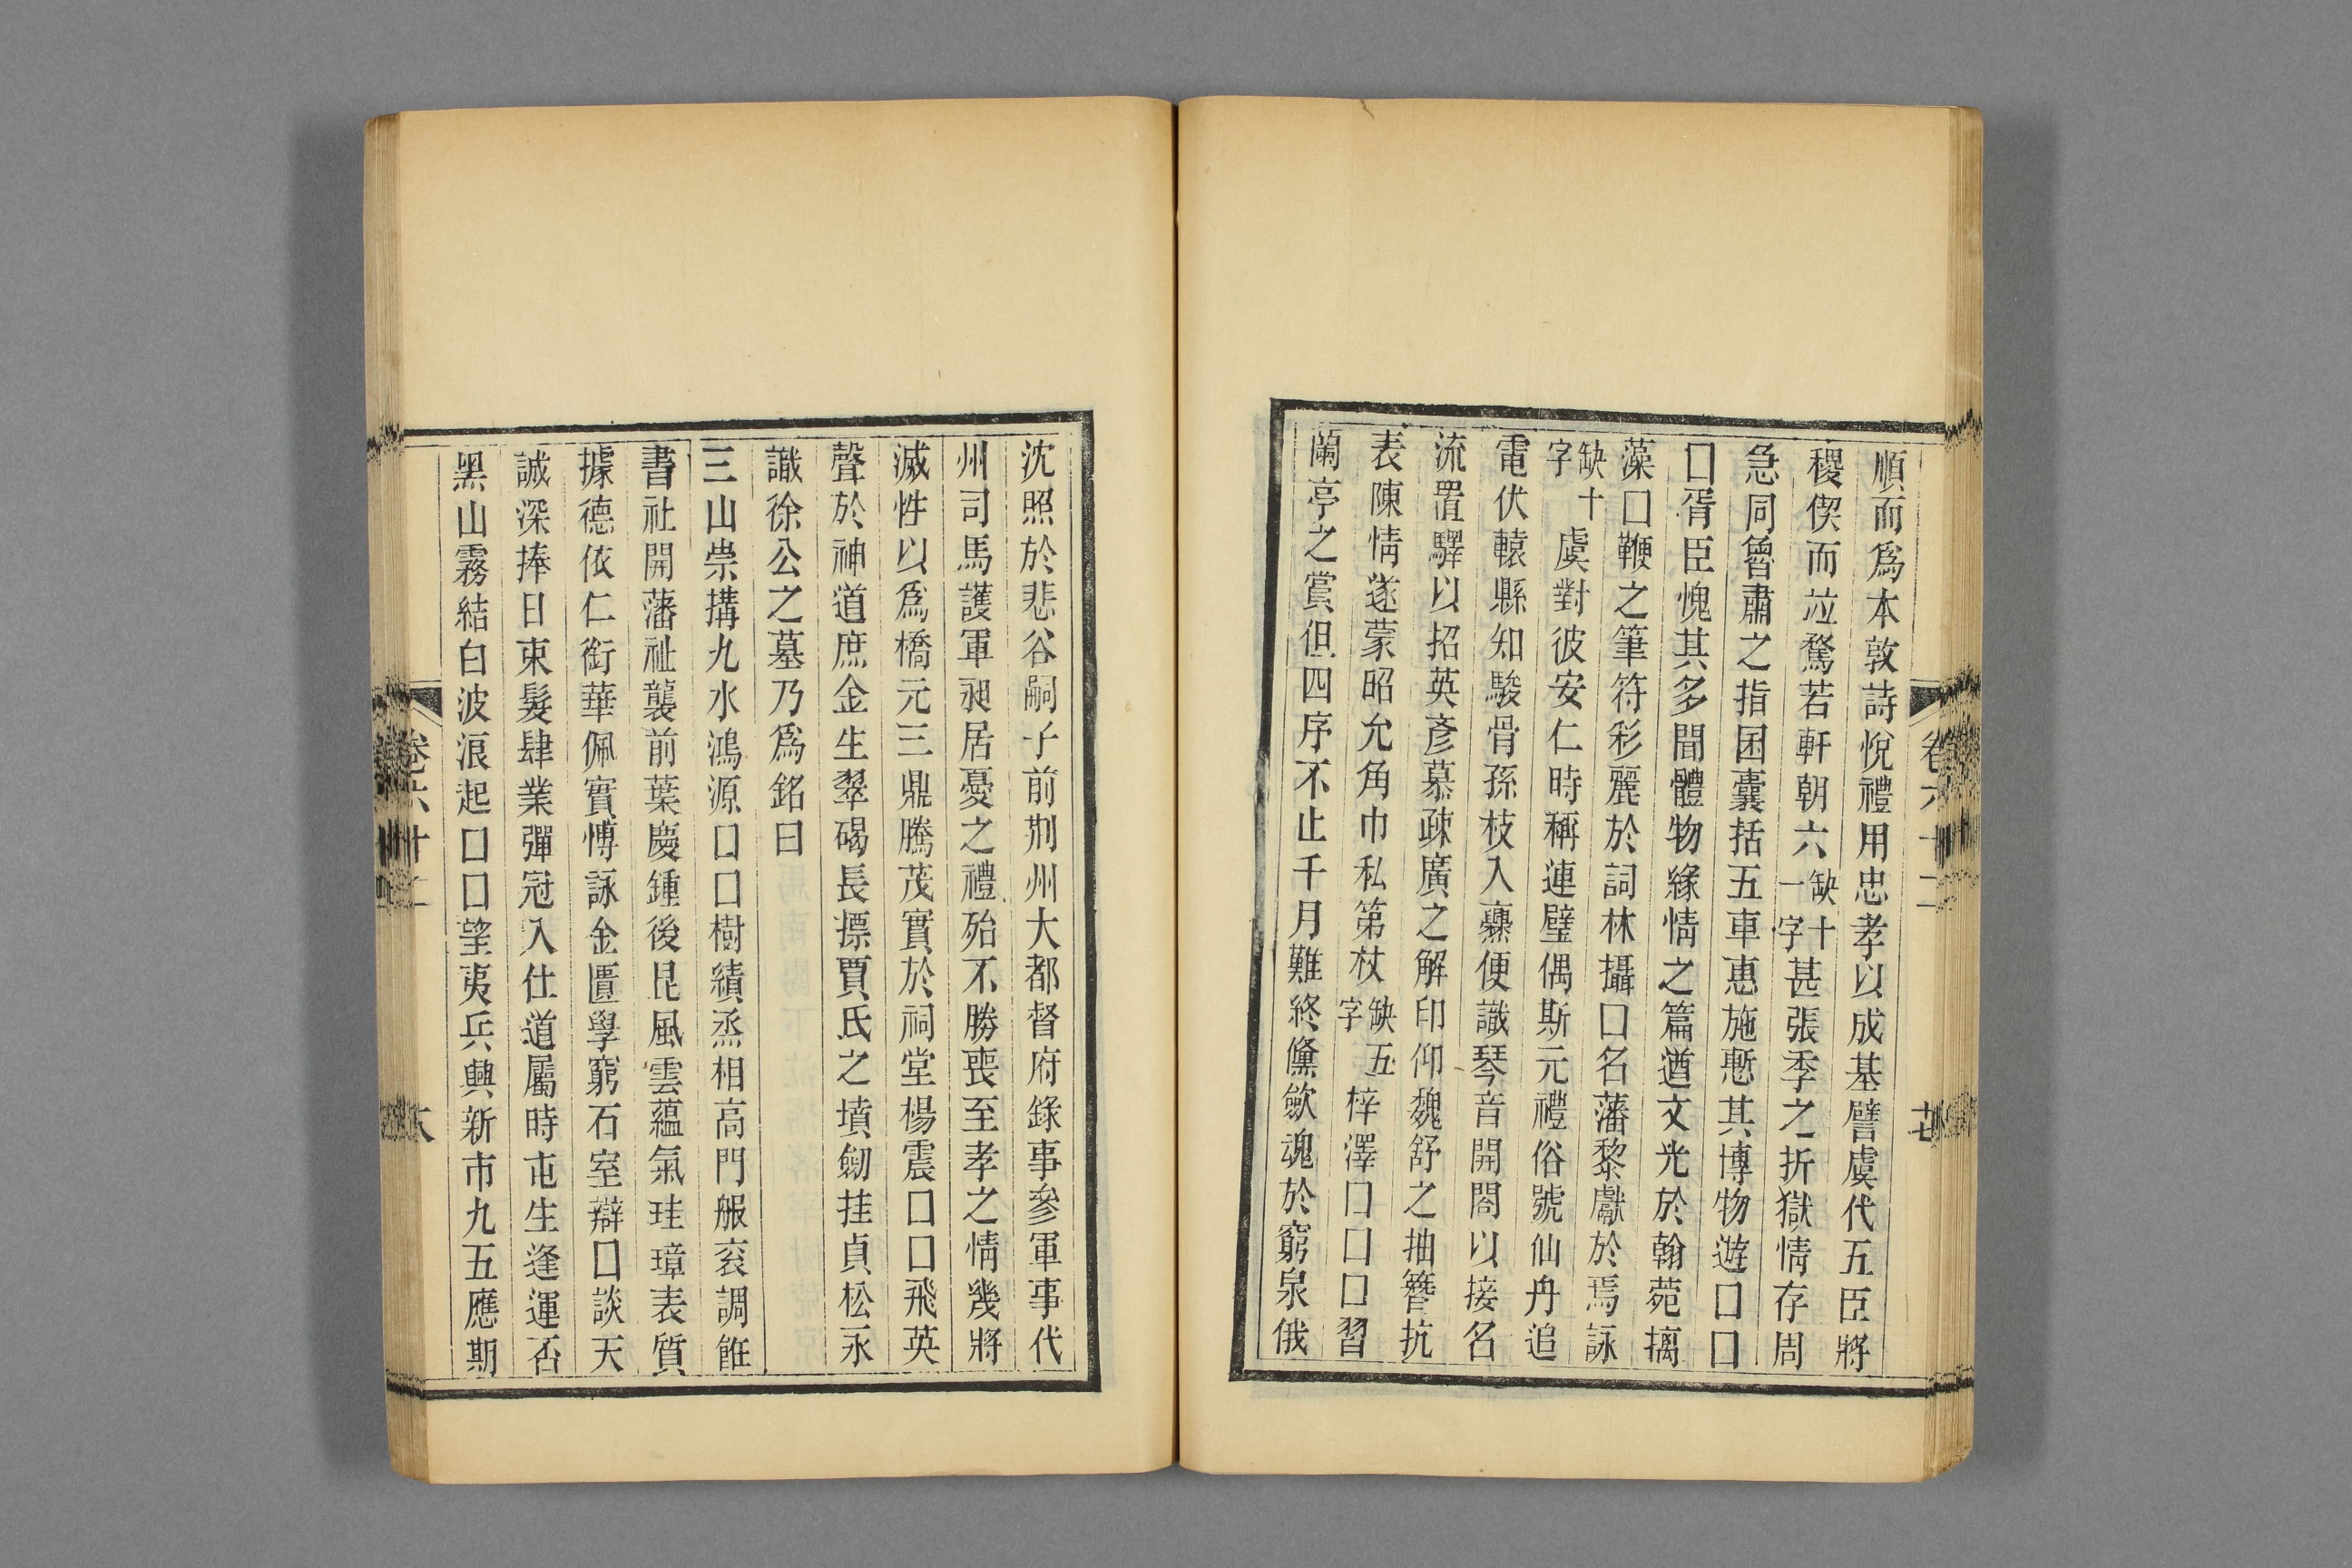 順而爲本敦詩悅禮用忠孝以成基譬虞代五臣將
稷偰而竝騖若軒朝六缺十一字甚張季之折獄情存周
急同魯肅之指囷囊括五車惠施慙其博物遊囗囗
囗胥臣愧其多聞體物緣情之篇遒文光於翰菀摛
藻囗鞭之筆符彩麗於詞林攝囗名藩黎獻於焉詠
缺十字虞對彼安仁時稱連璧偶斯元禮俗號仙舟追
電伏轅縣知駿骨孫枝入爨便識琴音開閤以接名
流置驛以招英彥慕疎廣之解印仰魏舒之抽簪抗
表陳情遂蒙昭允角巾私第杖缺五字梓澤囗囗囗習
蘭亭之賞但四序不止千月難終儵歛魂於窮泉俄
沈照於悲谷嗣子前荆州大都督府錄事參軍事代
州司馬護軍昶居憂之禮殆不勝喪至孝之情幾將
滅性以爲橋元三鼎騰茂實於祠堂楊震囗囗飛英
聲於神道庶金生翠碣長摽賈氏之墳劒挂貞松永
識徐公之墓乃爲銘曰
三山崇搆九水鴻源囗囗樹績烝相高門服袞調餁
書社開藩祉襲前葉慶鍾後昆風雲蘊氣珪璋表質
據德依仁銜華佩實愽詠金匱學窮石室辯囗談天
誠深捧日束髮肆業彈冠入仕道屬時屯生逢運否
黑山霧結白波浪起囗囗望夷兵興新市九五應期
卷六十二